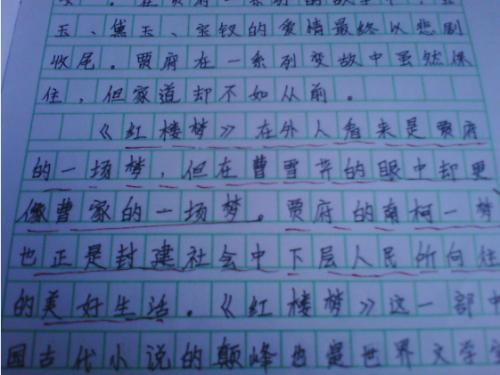 玉、黛玉、宝钗的爱情最终以悲剧
收尾。贾府在一系列变故中虽然保
住，但家道却不如从前。
《红楼梦》在外人看来是贾府
的一场梦，但在曹雪芹的眼中却更
像曹家的一场梦。贾府的南柯一梦
也正是封建社会中下层人民所向往
的美好生活。《红楼梦》这一部中
国古代小说的颠峰也是世界文学